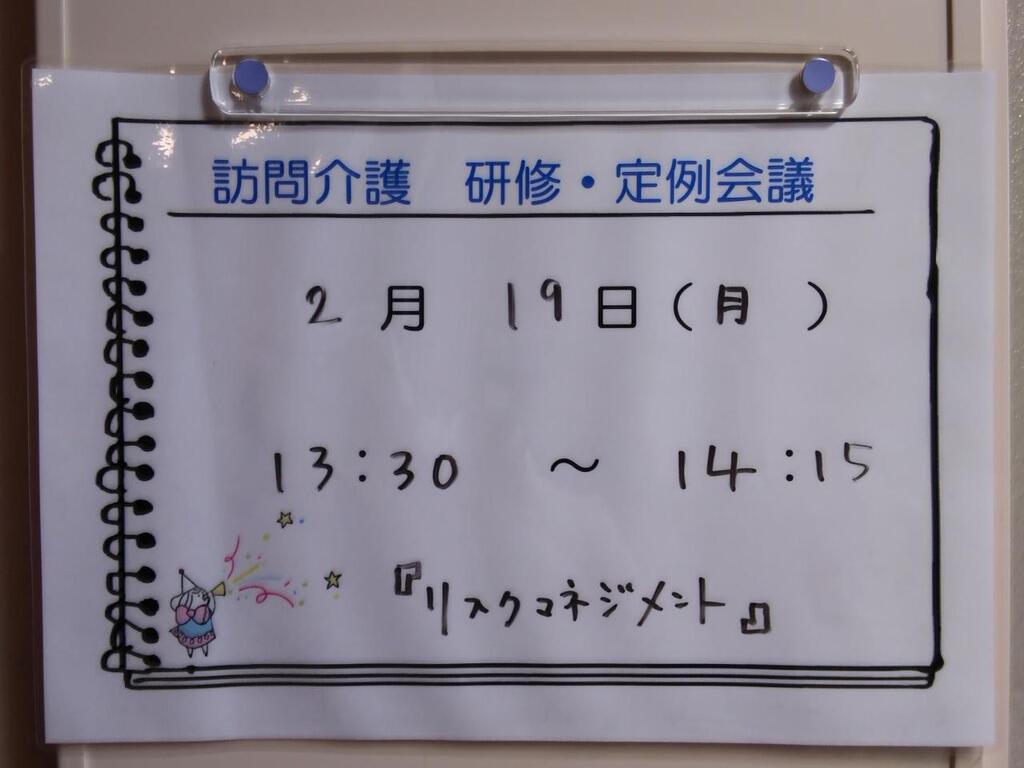 訪問介護　研修・定例会議
2月 19日(月)
13:30 ～ 14:15
『リスクマネジメント』